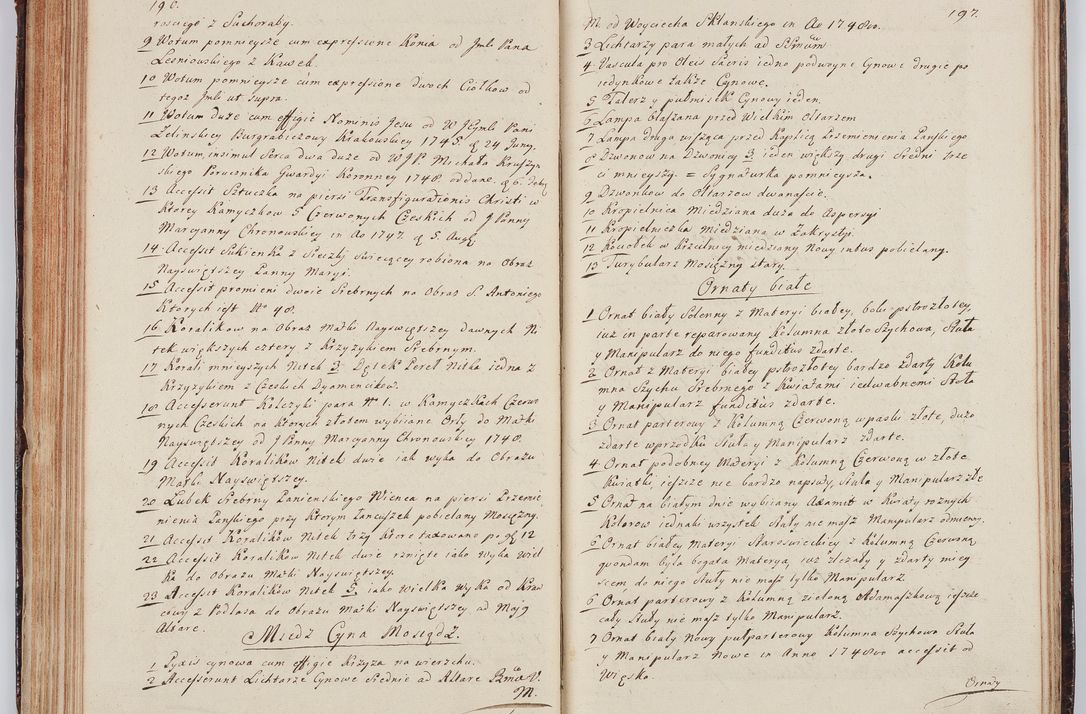 190.
rosciego z Suchoraby.
9 Wotum pomnieysze cum expressione Konia od Jmsi Pana
Lesniowskiego z Kawek.
10 Wotum pomnieysze cum expressione dwoch Ciołkow od
tegoż Jmsi ut supra.
11 Wotum duże cum effigie Nominis Jesu od W Jeymsi Pani
Zelinskiey Burgrabiczowy Krakowskiey 1745. d 24 Juny.
12 Wotum, insimul Serca dwa duże od WJP. Michała Kruszyn
skiego Porucznika Gwardyi Koronney 1748. oddane. d 6.
13 Accessit Sztuczka na piersi Transfigurationis Christi w
Ktorey Kamyczkow 5 Czerwonych Czeskich od J Panny
Maryanny Chronowskiey in Ao 1747. d 5. Aug.
14 Accessit Sukienka z Sieczki swiecącey robiona na Obraz
Nayswiętszey Panny Maryi.
15 Accessit promieni dwoie Srebrnych na Obraz S. Antoniego
Ktorych iest No 48.
16 Koralikow na Obraz Matki Nayswiętszey dawnych Ni
tek większych cztery z Krzyzykiem Srebrnym.
17 Korali mnieyszych Nitek 3. Dętek Pereł Nitka iedna z
Krzyzykiem z Czeskich Dyamencikow.
18 Accesserunt Kolczyki para No 1. w Kamyczkach Czerwo
nych Czeskich na Ktorych złotem wybiiane Orły do Matki
Nayswiętszey od J Panny Maryanny Chronowskiey 1748.
19 Accessit Koralikow Nitek dwie iak wyka do Obrazu
Matki Nayswiętszey.
20 Lubek Srebrny Panienskiego Wienca na piersi Przemie
nienia Panskiego przy Ktorym Łancuszek pobielany Mosięzny.
21 Accessit Koralikow Nitek trzy Ktore taxowane po 12
22 Accessit Koralikow Nitek dwie rznięte iako Wyka Wiel
ka do Obrazu Matki Nayswiętszey.
23 Accessit Koralikow Nitek 5. iako Wielka Wyka od Kraw
cowy z Podlasa do Obrazu Matki Nayswiętszey ad Majg
Altare.
Miedz Cyna Mosiądz.
1 Pyxis cynowa cum effigie Krzyza na wierzchu.
2 Accesserunt Lichtarze Cynowe Srednie ad Altare Bmæ V.
M.
197.
M. od Woyciecha Skłanskiego in Ao 1748vo.
3 Lichtarzy para małych ad SSmum
4 Vascula pro Oleis Sacris iedno podwoyne Cynowe drugie po
iedynkowe także Cynowe.
5 Talerz y pułmisek Cynowy ieden.
6 Lampa blaszana przed Wielkim Ołtarzem
7 Lampa druga wisząca przed Kaplicą Przemienienia Panskiego
8 Dzwonow na Dzwonicy 3. ieden większy drugi Sredni trze
ci mnieyszy. = Sygnaturka pomnieysza.
9 Dzwonkow do Ołtarzow dwanascie.
10 Kropielnica Miedziana duza do Aspersyi
11 Kropielniczka Miedziana w Zakrystyi.
12 Kociołek w Krzcilnicy miedziany Nowy intus pobielany.
13 Turybularz Mosięzny stary.
Ornaty białe
1 Ornat biały Solenny z Materyi białey, bole pstrozłotey,
iuz in parte reparowany Kolumna złoto Szychowa, Stuła
y Manipularz do niego funditus zdarte.
2 Ornat z Materyi białey pstrozłotey bardzo zdarty Kolu
mna Szychu Srebrnego z Kwiatami iedwabnemi Stuła
y Manipularz funditus zdarte.
3 Ornat parterowy z Kolumną Czerwoną w paski złote, duzo
zdarte w przodku Stuła y Manipularz zdarte.
4 Ornat podobney Materyi z Kolumną Czerwoną w złote
Kwiatki, ieszcze nie bardzo napsuty, Stuła y Manipularz złe
5 Ornat na białym dnie wybiiany Axamit w Kwiaty roznych
Kolorow iednaki wszystek Stuły nie masz Manipularz odmienny.
6 Ornat białey Materyi Staroswieckiey z Kolumną Czerwoną
quondam była bogata Materya, iuz zlezały y zdarty miey
scem do niego Stuły nie masz tylko Manipularz.
6 Ornat parterowy z Kolumną zieloną Adamaszkową ieszcze
cały Stuły nie masz tylko Manipularz.
7 Ornat biały Nowy pułparterowy Kolumna Szychowa Stuła
y Manipularz Nowe in Anno 1748vo accessit od
Więska.
Ornaty